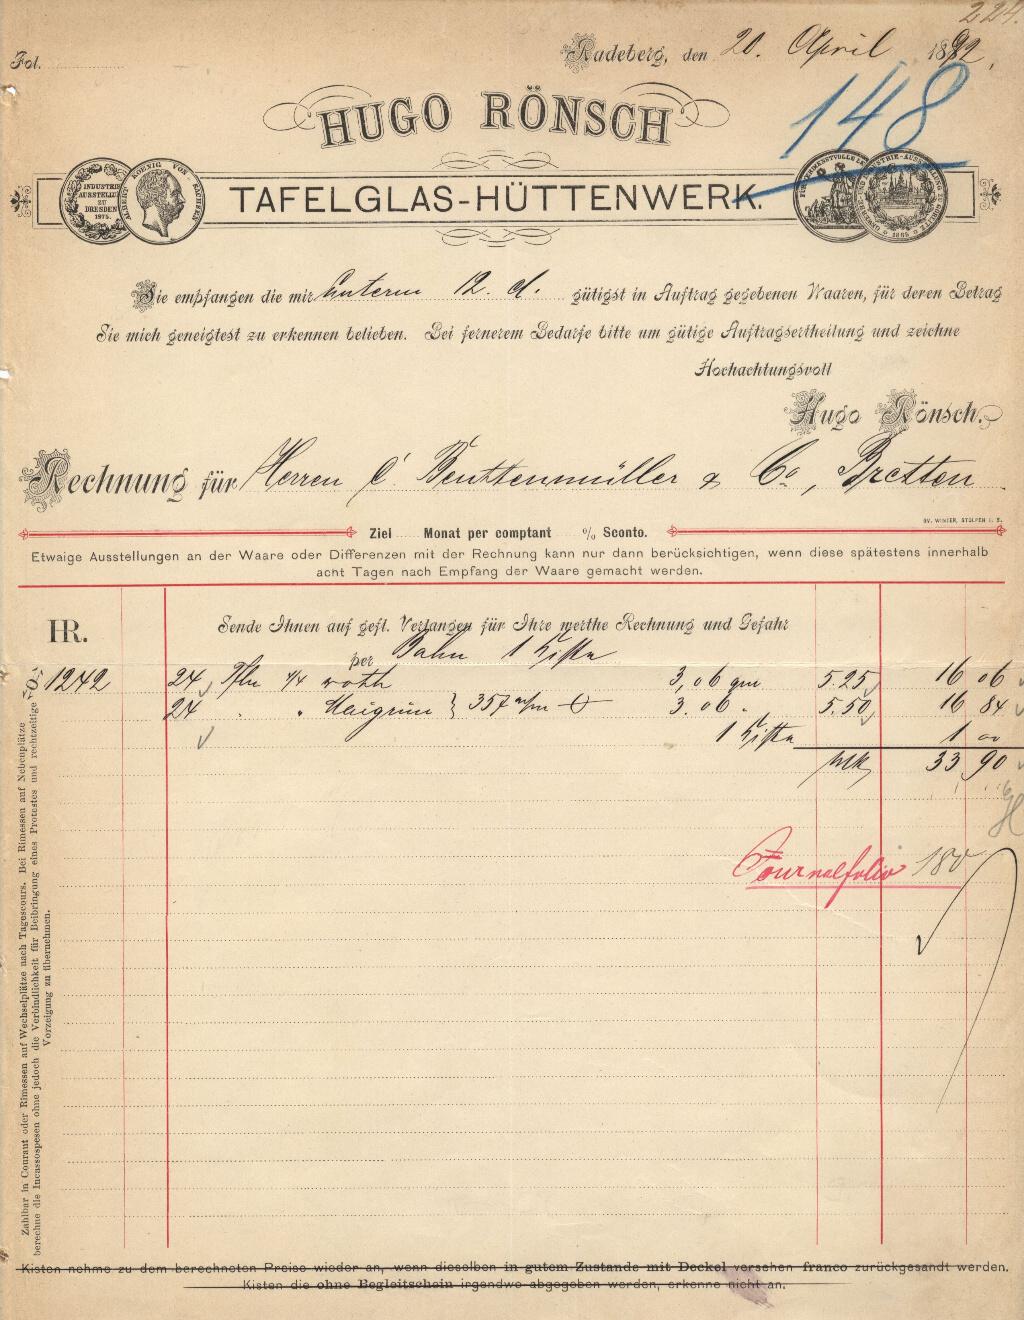 224.
Fol.
Radeberg, den 20. April 1892.
148
HUGO RÖNSCH
TAFELGLAS-HÜTTENWERK.
INDUSTRIE AUSSTELLUNG ZU DRESDEN 1875.
ALBERT KOENIG VON SACHSEN
1885
Sie empfangen die mir unterm 12. d. gütigst in Auftrag gegebenen Waaren, für deren Betrag
Sie mich geneigtest zu erkennen belieben. Bei fernerem Bedarfe bitte um gütige Auftragsertheilung und zeichne
Hochachtungsvoll
Hugo Rönsch.
Rechnung für Herren C. Beuttenmüller & Co, Bretten
GV. WINTER, STOLPEN I. S.
Ziel Monat per comptant % Sconto.
Etwaige Ausstellungen an der Waare oder Differenzen mit der Rechnung kann nur dann berücksichtigen, wenn diese spätestens innerhalb
acht Tagen nach Empfang der Waare gemacht werden.
HR.
Sende Ihnen auf gefl. Verlangen für Ihre werthe Rechnung und Gefahr
per Bahn 1 Kiste
No. 1242 24 Tfln 4/4 roth 3,06 qm 5.25 16 06
24 " " Maigrün } 357 3.06 " 5.50 16 84
1 Kiste 1 00
Mk 33 90
Journalfolio 180
Zahlbar in Courant oder Rimessen auf Wechselplätze nach Tagescours. Bei Rimessen auf Nebenplätze
berechne die Incassospesen ohne jedoch die Verbindlichkeit für Beibringung eines Protestes und rechtzeitige
Vorzeigung zu übernehmen.
Kisten nehme zu dem berechneten Preise wieder an, wenn dieselben in gutem Zustande mit Deckel versehen franco zurückgesandt werden.
Kisten die ohne Begleitschein irgendwo abgegeben werden, erkenne nicht an.